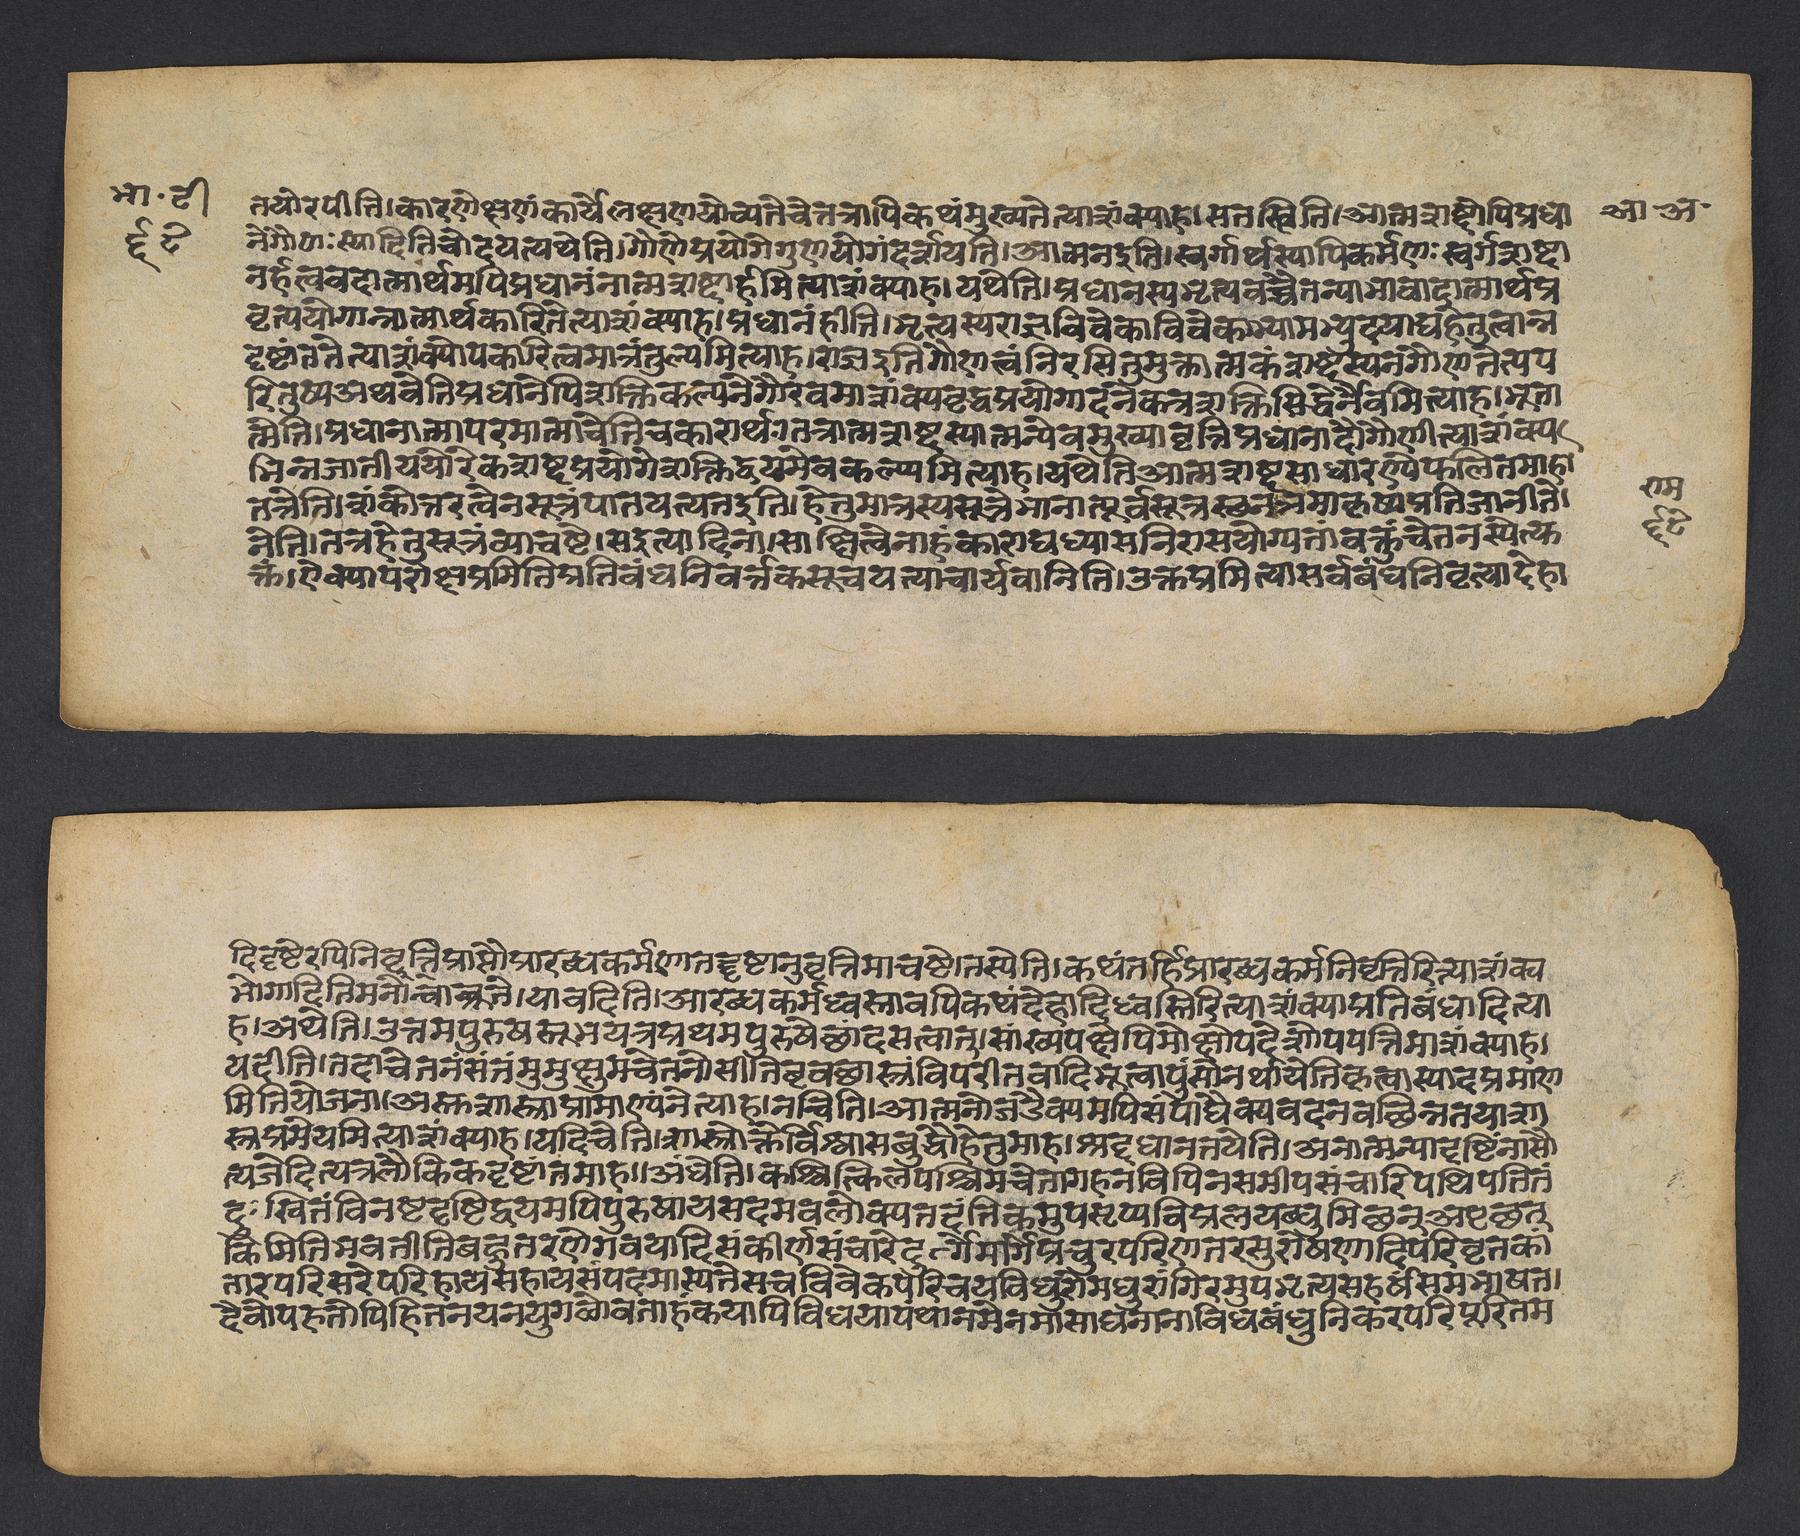 भा॰टी
६९
आ॰अ॰
तयोरपीति।कारणेक्षणंकार्येलक्षणयोच्यतेचेतत्रापिकथंमुख्यतेत्याशंक्याह।सतस्त्विति।आत्मशब्दोपिप्रधा
नेगौणःस्यादितिचोदयत्यथेति।गौणेप्रयोगेगुणयोगंदर्शयति।आत्मनइति।स्वर्गार्थस्यापिकर्मणःस्वर्गशब्दा
नर्हत्ववदात्मार्थमपिप्रधानंनात्मशब्दार्हमित्याशंक्याह।यथेति।प्रधानस्यभृत्यवच्चैतन्याभावादात्मार्थप्र
वृत्त्ययोगान्नात्मार्थकारितेत्याशंक्याह।प्रधानंहीति।भृत्यस्यराज्ञविवेकाविवेकाभ्यामभ्युदयाद्यहेतुत्वान्न
दृष्टांततेत्याशंक्योपकारित्वमात्रंतुल्यमित्याह।राज्ञइतिगौणत्वंनिरसितुमुक्तात्मकंशब्दस्यनगौणतेत्यप
रितुष्यअथवेतिप्रधानेपिशक्तिकल्पनेगौरवमाशंक्यवृद्धप्रयोगादनेकत्रशक्तिसिद्धेर्नैवमित्याह।भूता
त्मेति।प्रधानात्मापरमात्माचेतिचकारार्थःतत्रात्मशब्दस्यात्मन्येवमुख्यावृत्तिप्रधानादौगौणीत्याशंक्य
भिन्नजातीययोरेकशब्दप्रयोगेशक्तिद्वयमेवकल्प्यमित्याह।यथेतिआत्मशब्दसाधारण्येफलितमाह।
तत्रेति।शंकोत्तरत्वेनसूत्रंपातयत्यतइति।हेतुमात्रस्यसूत्रेभानात्पूर्वसूत्रस्थनञमाकृष्यप्रतिजानीते।
नेति।तत्रहेतुसूत्रंव्याचष्टे।सइत्यादिना।साक्षित्वेनाहंकाराद्यध्यासनिरासयोग्यतांवक्तुंचेतनस्येत्यु
क्तं।ऐक्यापरोक्षप्रमितिप्रतिबंधनिवर्त्तकसूचयत्याचार्यवानिति।उक्तप्रमित्यासर्वबंधनिवृत्त्यादेहा
राम
६९
दिदृष्टेरपिनिवृत्तिप्राप्तौप्रारब्धकर्मणातद्दृष्टानुवृत्तिमाचष्टे।तस्येति।कथंतर्हिप्रारब्धकर्मनिवृत्तिरित्याशंक्य
भोगादितिमनोन्वाब्रूते।यावदिति।आरब्धकर्मध्वस्तावपिकथंदेहादिध्वस्तिरित्याशंक्याप्रतिबंधादित्या
ह।अथेति।उत्तमपुरुषस्तूभयत्रप्रथमपुरुषेछांदसत्वात्।सांख्यपक्षेपिमोक्षोपदेशोपपत्तिमाशंक्याह।
यदीति।तदाचेतनंसंतंमुमुक्षुमचेतनोसीतिब्रुवच्छास्त्रंविपरीतवादिभूत्वापुंसोनर्थायेतिकृत्वास्यादप्रमाण
मितियोजना।अस्तुशास्त्राप्रामाण्यंनेत्याह।नत्विति।आत्मनोजडैक्यमपिसंपाद्यैक्यवदनवच्छिन्नतयाशा
स्त्रप्रमेयमित्याशंक्याह।यदिचेति।शास्त्रोक्तेर्विश्वासबुद्धौहेतुमाह।श्रद्दधानतयेति।अनात्मन्यादृष्टिंनासौ
त्यजेदित्यत्रलौकिकदृष्टांतमाह।।अंधेति।कश्चित्किलपश्चिमचेतागहनविपिनसमीपसंचारिपथिपतितं
दुःखितंविनष्टदृष्टिद्वयमपिपुरुषायसदमवलोक्यतदंतिकमुपसृप्यविप्रलयब्धुमिच्छन्नुअपृच्छत्
किमितिभवतीतिबहुतरणेगवयादिसंकीर्णसंचारेदुर्गेमार्गेप्रचुरपरिणतरसुरोषणादिपरिवृतकां
तारपरिसरेपरिहायसहायसंपदमास्यतेसचविवेकपरिचयविधुरोमधुरांगिरमुपश्रुत्यसहर्षसमभाषत।
दैवोपहतोपिहितनयनयुगळोवताहंकयापिविधयापंथानमेनमासाद्यनानाविधबंधुनिकरपरिपूरितम